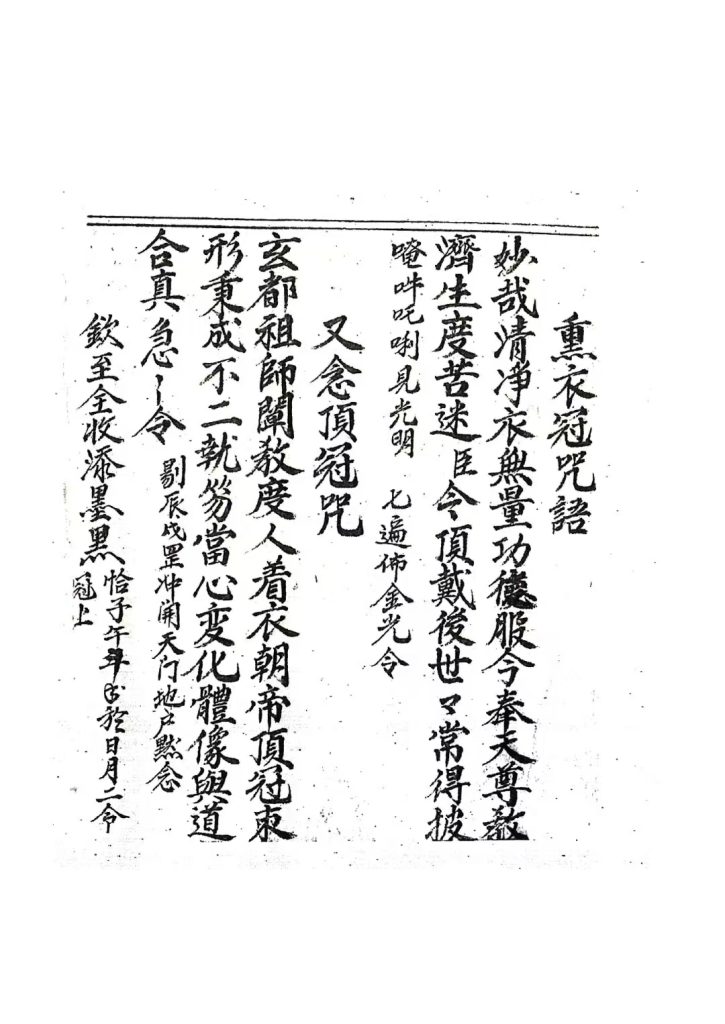 熏衣冠咒語
妙哉清净衣無量功德服今奉天尊教
濟生度苦迷臣令頂戴後世〻常得披
唵吽吒唎見光明 七遍佈金光令
又念頂冠咒
玄都祖師闡教度人着衣朝帝頂冠束
形秉成不二執笏當心变化體像與道
合真急〻令 剔辰戌罡冲開天门地户黙念
欽至全收添墨黑 恰子午 於日月二令
冠上